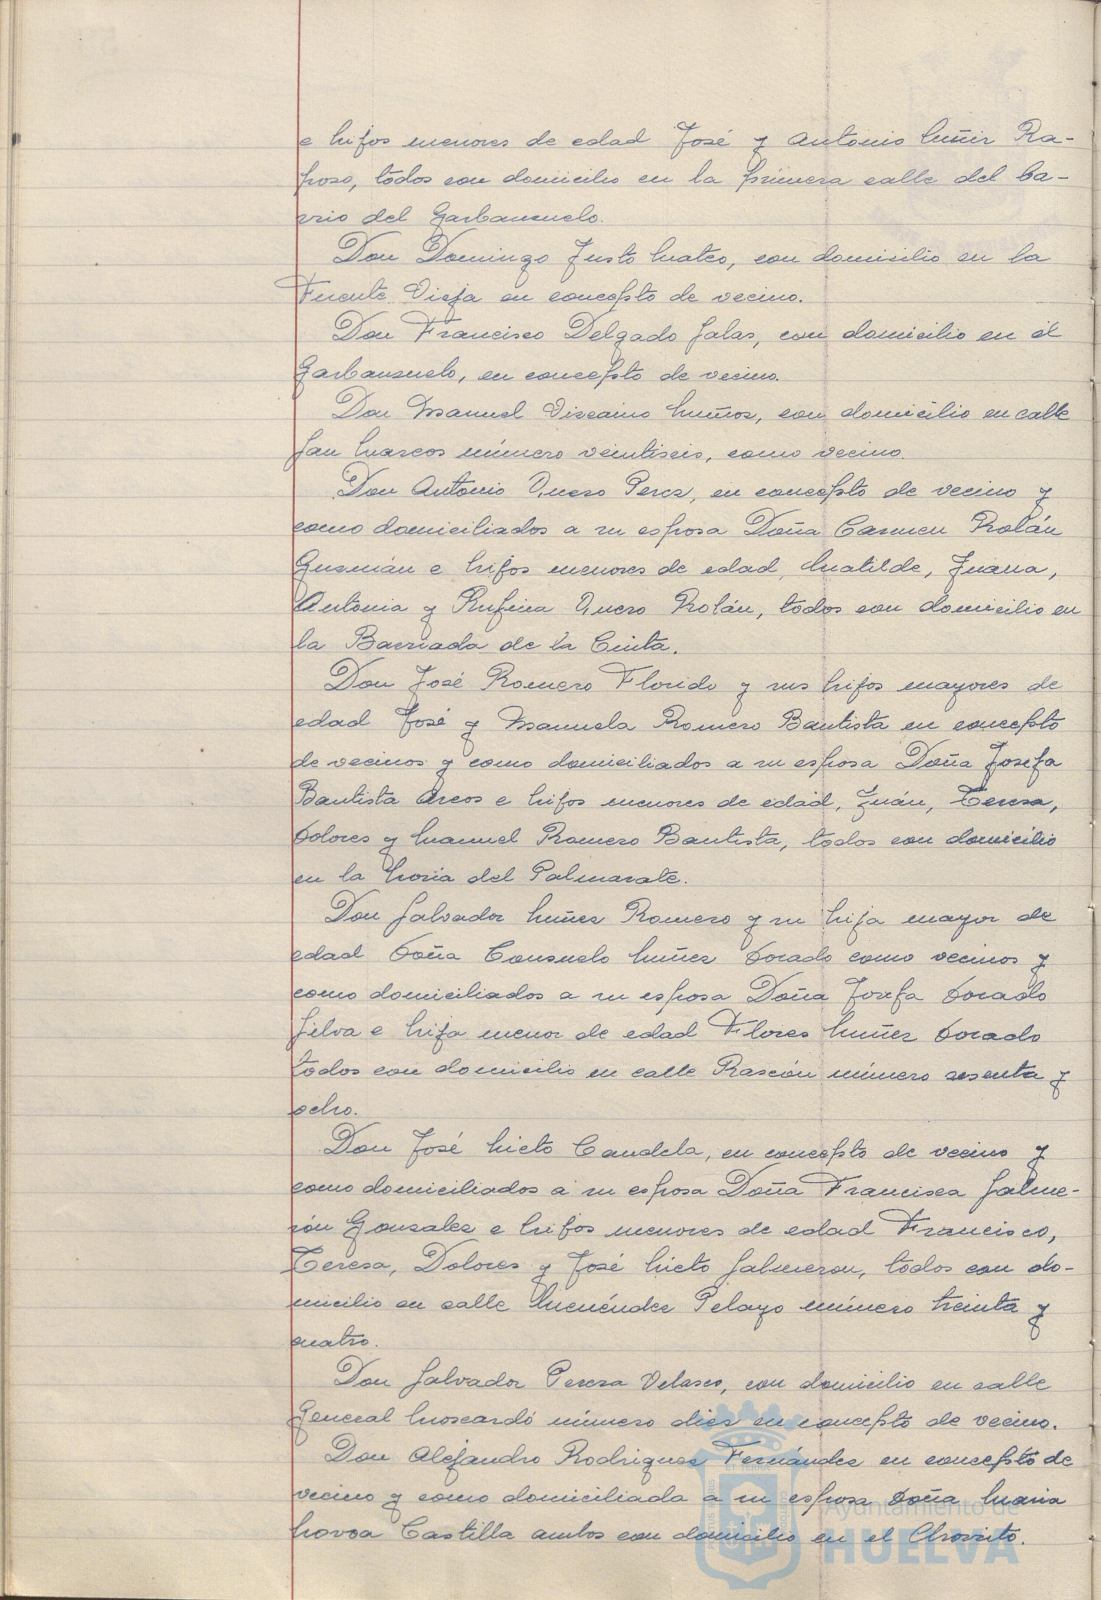 e hijos menores de edad José y Antonio Muñiz Ra-
poso, todos con domicilio en la primera calle del ba-
rrio del Garbanzuelo.
Don Domingo Justo Mateo, con domicilio en la
Fuente Vieja en concepto de vecino.
Don Francisco Delgado Salas, con domicilio en él
Garbanzuelo, en concepto de vecino.
Don Manuel Vizcaino Muñoz, con domicilio en calle
San Marcos número veintiseis, como vecino.
Don Antonio Quero Perez, en concepto de vecino y
como domiciliados a su esposa Doña Carmen Rolán
Guzmán e hijos menores de edad, Matilde, Juana,
Antonia y Rufina Quero Rolán, todos con domicilio en
la Barriada de la Cinta.
Don José Romero Florido y sus hijos mayores de
edad José y Manuela Romero Bautista en concepto
de vecinos y como domiciliados a su esposa Doña Josefa
Bautista Arcos e hijos menores de edad, Juán, Teresa,
Dolores y Manuel Romero Bautista, todos con domicilio
en la Noria del Palmarate.
Don Salvador Nuñez Romero y su hija mayor de
edad Doña Consuelo Nuñez Dorado como vecinos y
como domiciliados a su esposa Doña Josefa Dorado
Silva e hija menor de edad Flores Nuñez Dorado
todos con domicilio en calle Rascón número sesenta y
ocho.
Don José Nieto Candela, en concepto de vecino y
como domiciliados a su esposa Doña Francisca Salme-
rón Gonzalez e hijos menores de edad Francisco,
Teresa, Dolores y José Nieto Salmeron, todos con do-
micilio en calle Menéndez Pelayo número treinta y
cuatro.
Don Salvador Perera Velasco, con domicilio en calle
General Moscardó número diez en concepto de vecino.
Don Alejandro Rodriguez Fernández en concepto de
vecino y como domiciliada a su esposa Doña Maria
Novoa Castilla ambos con domicilio en el Chorrito.
Ayuntamiento de
HUELVA